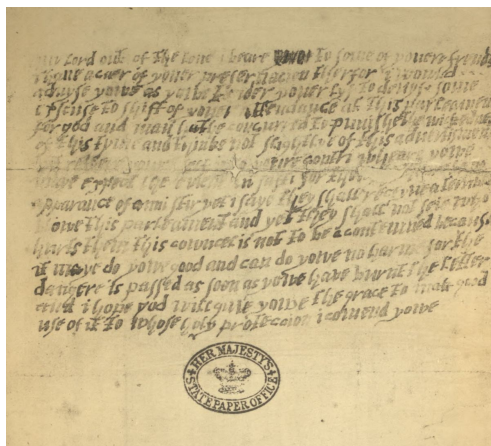 my lord out of the love i beare to some of youere frends
i have a caer of youer preseruacion therfor i would
aduyse yowe as yowe tender youer lyf to deuys some
exscuse to shift of youer attendance at this parleament
for god and man hathe concurred to punishe the wickednes
of this tyme and thinke not slightlye of this aduertisment
but retyere youre self into youre contri wheare yowe
maye expect the event in safti for thowghe
apparance of anni stir yet i saye they shall receyue a terrible
blowe this parleament and yet they shall not seie who
hurts them this councel is not to be contemned becaus
it maye do yowe good and can do yowe no harme for the
dangere is passed as soon as yowe have burnt the letter
and i hope god will giue yowe the grace to mak good
use of it to whose holy proteccion i comend yowe
HER MAJESTY'S
STATE PAPER OFFICE